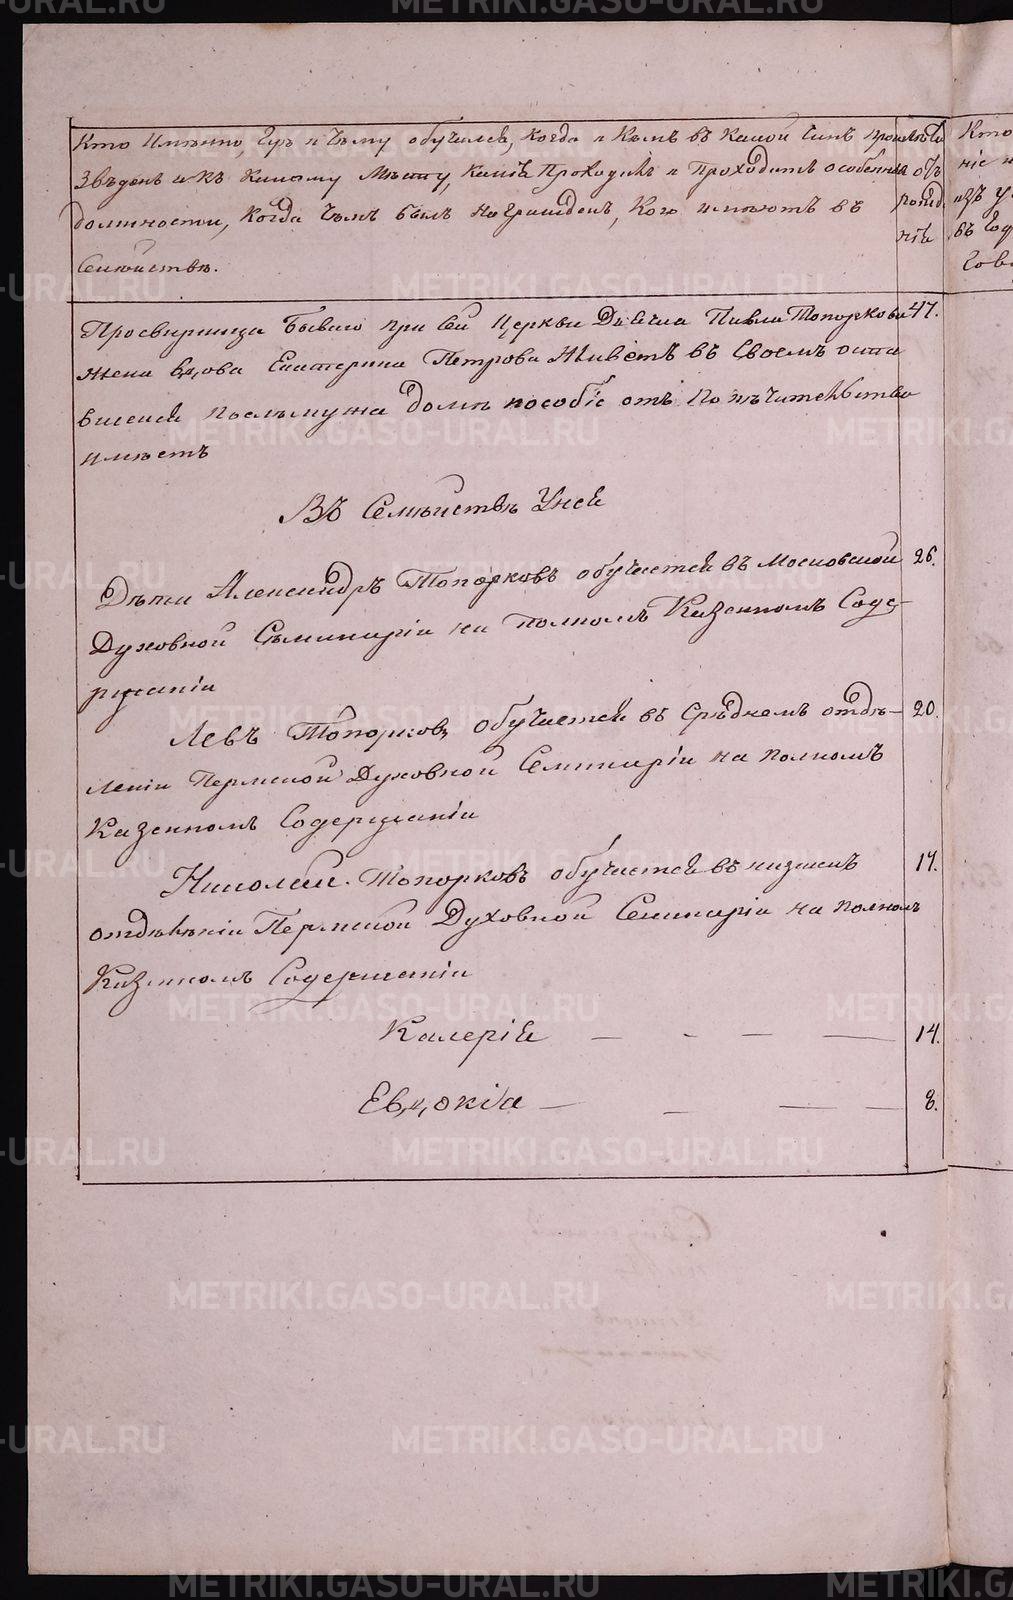 Кто Имянно, Гдѣ и Чему обучился, Когда и Кѣмъ въ Какой Чинъ произ
Звѣденъ и къ какому Мѣсту, Какiя Проходилъ и Проходитъ особенныя
должности, Когда Чѣмъ былъ награжденъ, Кого имѣютъ въ
Семѣйствѣ.
Лѣта
отъ
рожд
нiя
Кто
нiе
изъ
въ
Просвирница Бывшаго при Сей Церкви Дьякона Павла Топоркова 47.
жена вдова Екатерина Петрова Живетъ въ Своемъ оста
вшемся послѣмужа домѣ пособiе отъ Попѣчительства
имѣетъ
Въ Семѣйствѣ Унея
Дѣти Александръ Топорковъ обучается въ Московской 26.
Духовной Сѣминарiи на полномъ Казенномъ Соде-
ржанiи
Левъ Топорковъ обучается въ Срѣднемъ отдѣ- 20.
ленiи Пермской Духовной Семинарiи на полномъ
Казенномъ Содержанiи
Николай Топорковъ обучается въ низшемъ 17.
отдѣленiи Пермской Духовной Семинарiи на полномъ
Казенномъ Содержанiи
Калерiя — - — — 14.
Евдокiа — — — — 8.
METRIKI.GASO-URAL.RU